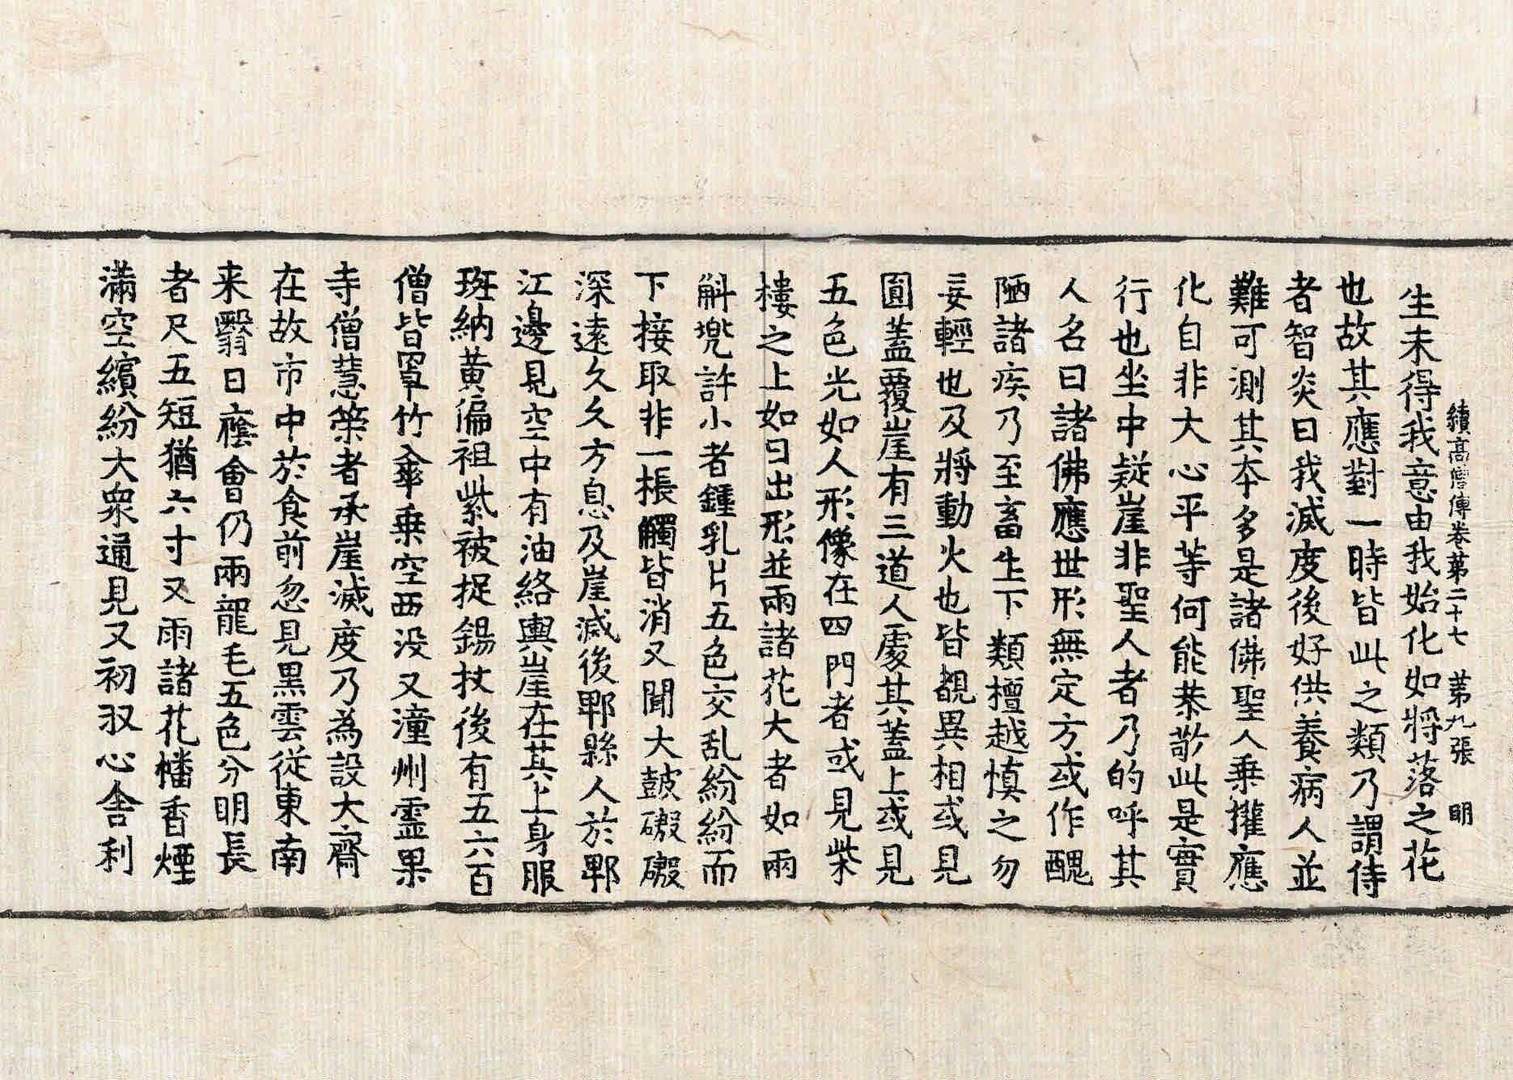 續高僧傳卷第二十七 第九張 明
生未得我意由我始化如將落之花
也故其應對一時皆此之類乃謂侍
者智炎曰我滅度後好供養病人並
難可測其本多是諸佛聖人乘權應
化自非大心平等何能恭敬此是實
行也坐中疑崖非聖人者乃的呼其
人名曰諸佛應世形無定方或作醜
陋諸疾乃至畜生下類檀越慎之勿
妄輕也及將動火也皆覩異相或見
圓蓋覆崖有三道人處其蓋上或見
五色光如人形像在四門者或見柴
樓之上如日出形並雨諸花大者如兩
斛兠許小者鍾乳片五色交乱紛紛而
下接取非一棖觸皆消又聞大鼓磤磤
深遠久久方息及崖滅後郫縣人於郫
江邊見空中有油絡輿崖在其上身服
斑納黄偏袒紫被捉錫杖後有五六百
僧皆罩竹傘乘空西没又潼州靈果
寺僧慧策者承崖滅度乃為設大齋
在故市中於食前忽見黒雲從東南
来翳日䕃會仍雨龍毛五色分明長
者尺五短猶六寸又雨諸花幡香煙
滿空繽紛大衆通見又初収心舍利